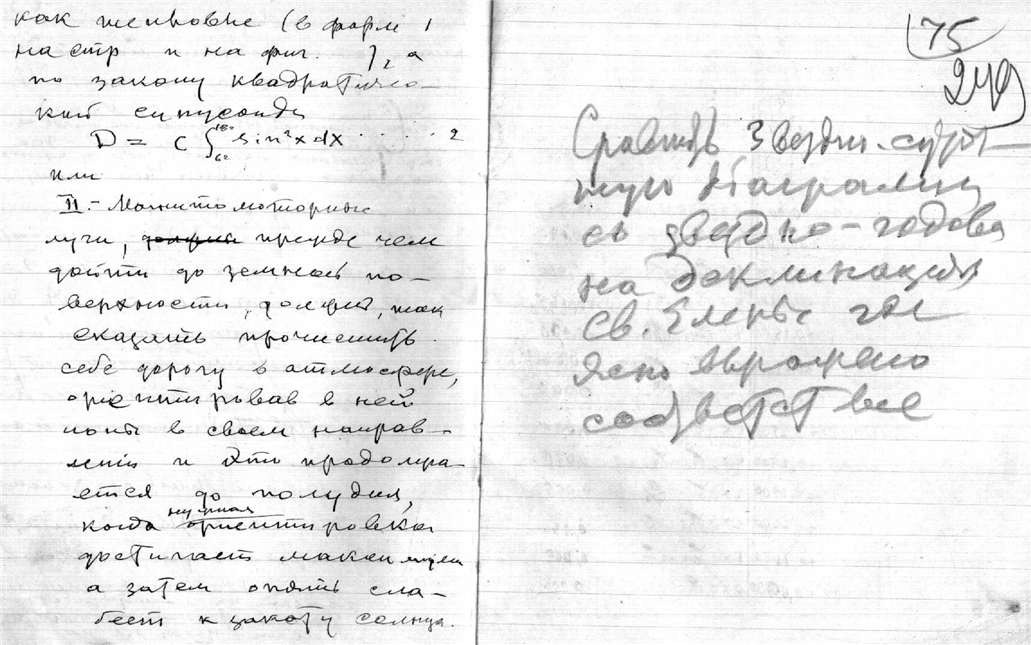 как тепловые (в форм 1
на стр и на фиг. ), а
по закону квадратичес-
кой синусоиды
D = C ∫ sin²x dx . . . . . 2
или
II.- Магнитомоторные
лучи, прежде чем
дойти до земной по-
верхности, должны, так
сказать прочистить
себе дорогу в атмосфере,
ориентировав в ней
ионы в своем направ-
лении и это продолжа-
ется до полудня,
нужная
когда ориентировка
достигает максимума
а затем опять сла-
беет к закату солнца.
175
249
Сравнить Звездно-суточ-
ную диаграмму
со звездно-годовой
на деклинациях
св. Елены где
Ясно выражено
соответствие